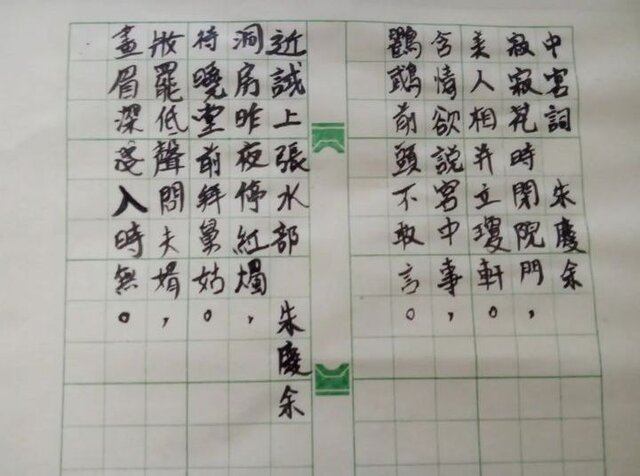 中宮詞 朱慶余
寂寂花時閉院門，
美人相并立瓊軒。
含情欲說宮中事，
鸚鵡前頭不敢言。
近試上張水部 朱慶余
洞房昨夜停紅燭，
待曉堂前拜舅姑。
妝罷低聲問夫婿，
畫眉深淺入時無。